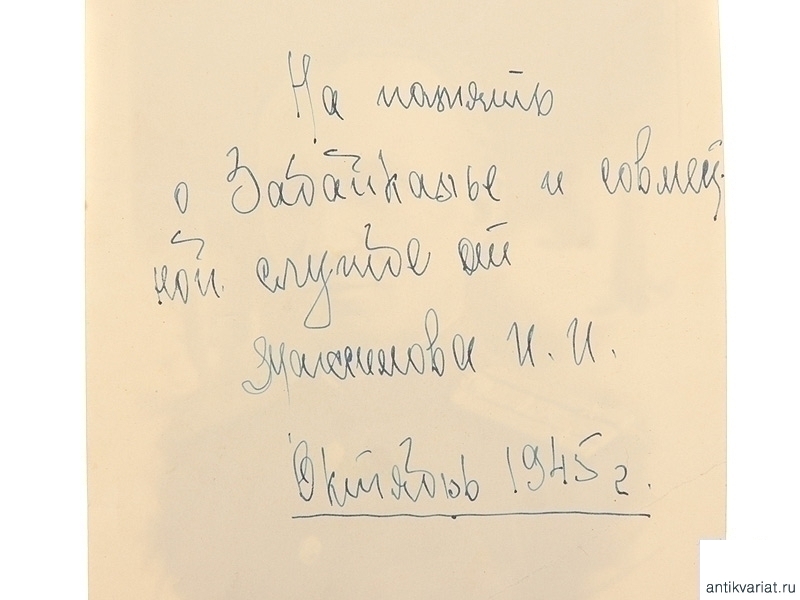 На память
о Забайкалье и совмест
ной службе от
Максимова И. И.
Октябрь 1945 г.
antikvariat.ru